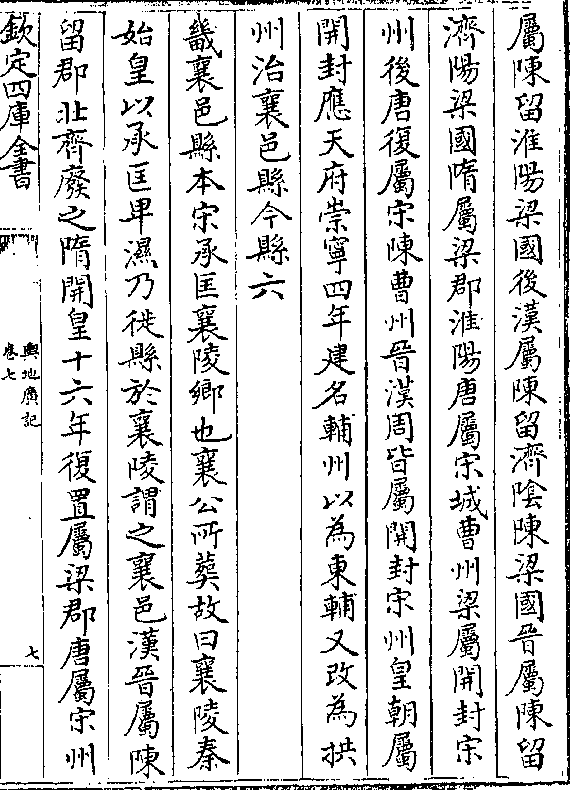 屬陳留淮陽梁國後漢屬陳留濟隂陳梁國晉屬陳留
濟陽梁國隋屬梁郡淮陽唐屬宋城曹州梁屬開封宋
州後唐復屬宋陳曹州晉漢周皆屬開封宋州皇朝屬
開封應天府崇寧四年建名輔州以為東輔又改為拱
州治襄邑縣今縣六
畿襄邑縣本宋承匡襄陵鄉也襄公所葬故曰襄陵秦
始皇以承匡卑濕乃徙縣於襄陵謂之襄邑漢晉屬陳
留郡北齊廢之隋開皇十六年復置屬梁郡唐屬宋州
欽定四庫全書
輿地廣記
卷七
七